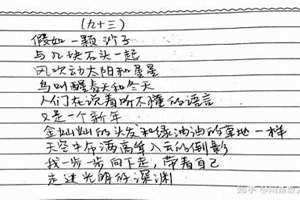 (九十三)
假如一颗沙子
与几块石头一起
风吹动太阳和星星
鸟叫醒春天和冬天
人们在说着听不懂的语言
又是一个新年
金灿灿的头发和绿油油的草地一样
天空中布满高耸入云的倒影
我一步一步向下走，带着自己
走进光明的深渊
知乎